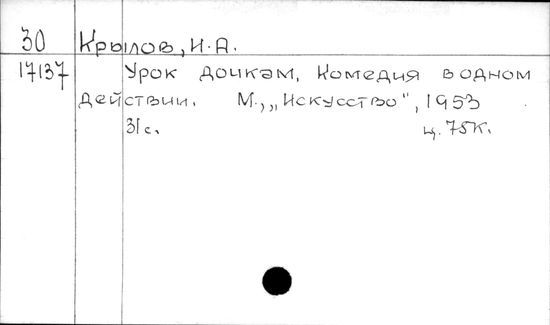 30 Крылов, И.А.
17137 Урок дочкам. Комедия в одном
действии. М., „Искусство", 1953
31с. ц. 75к.